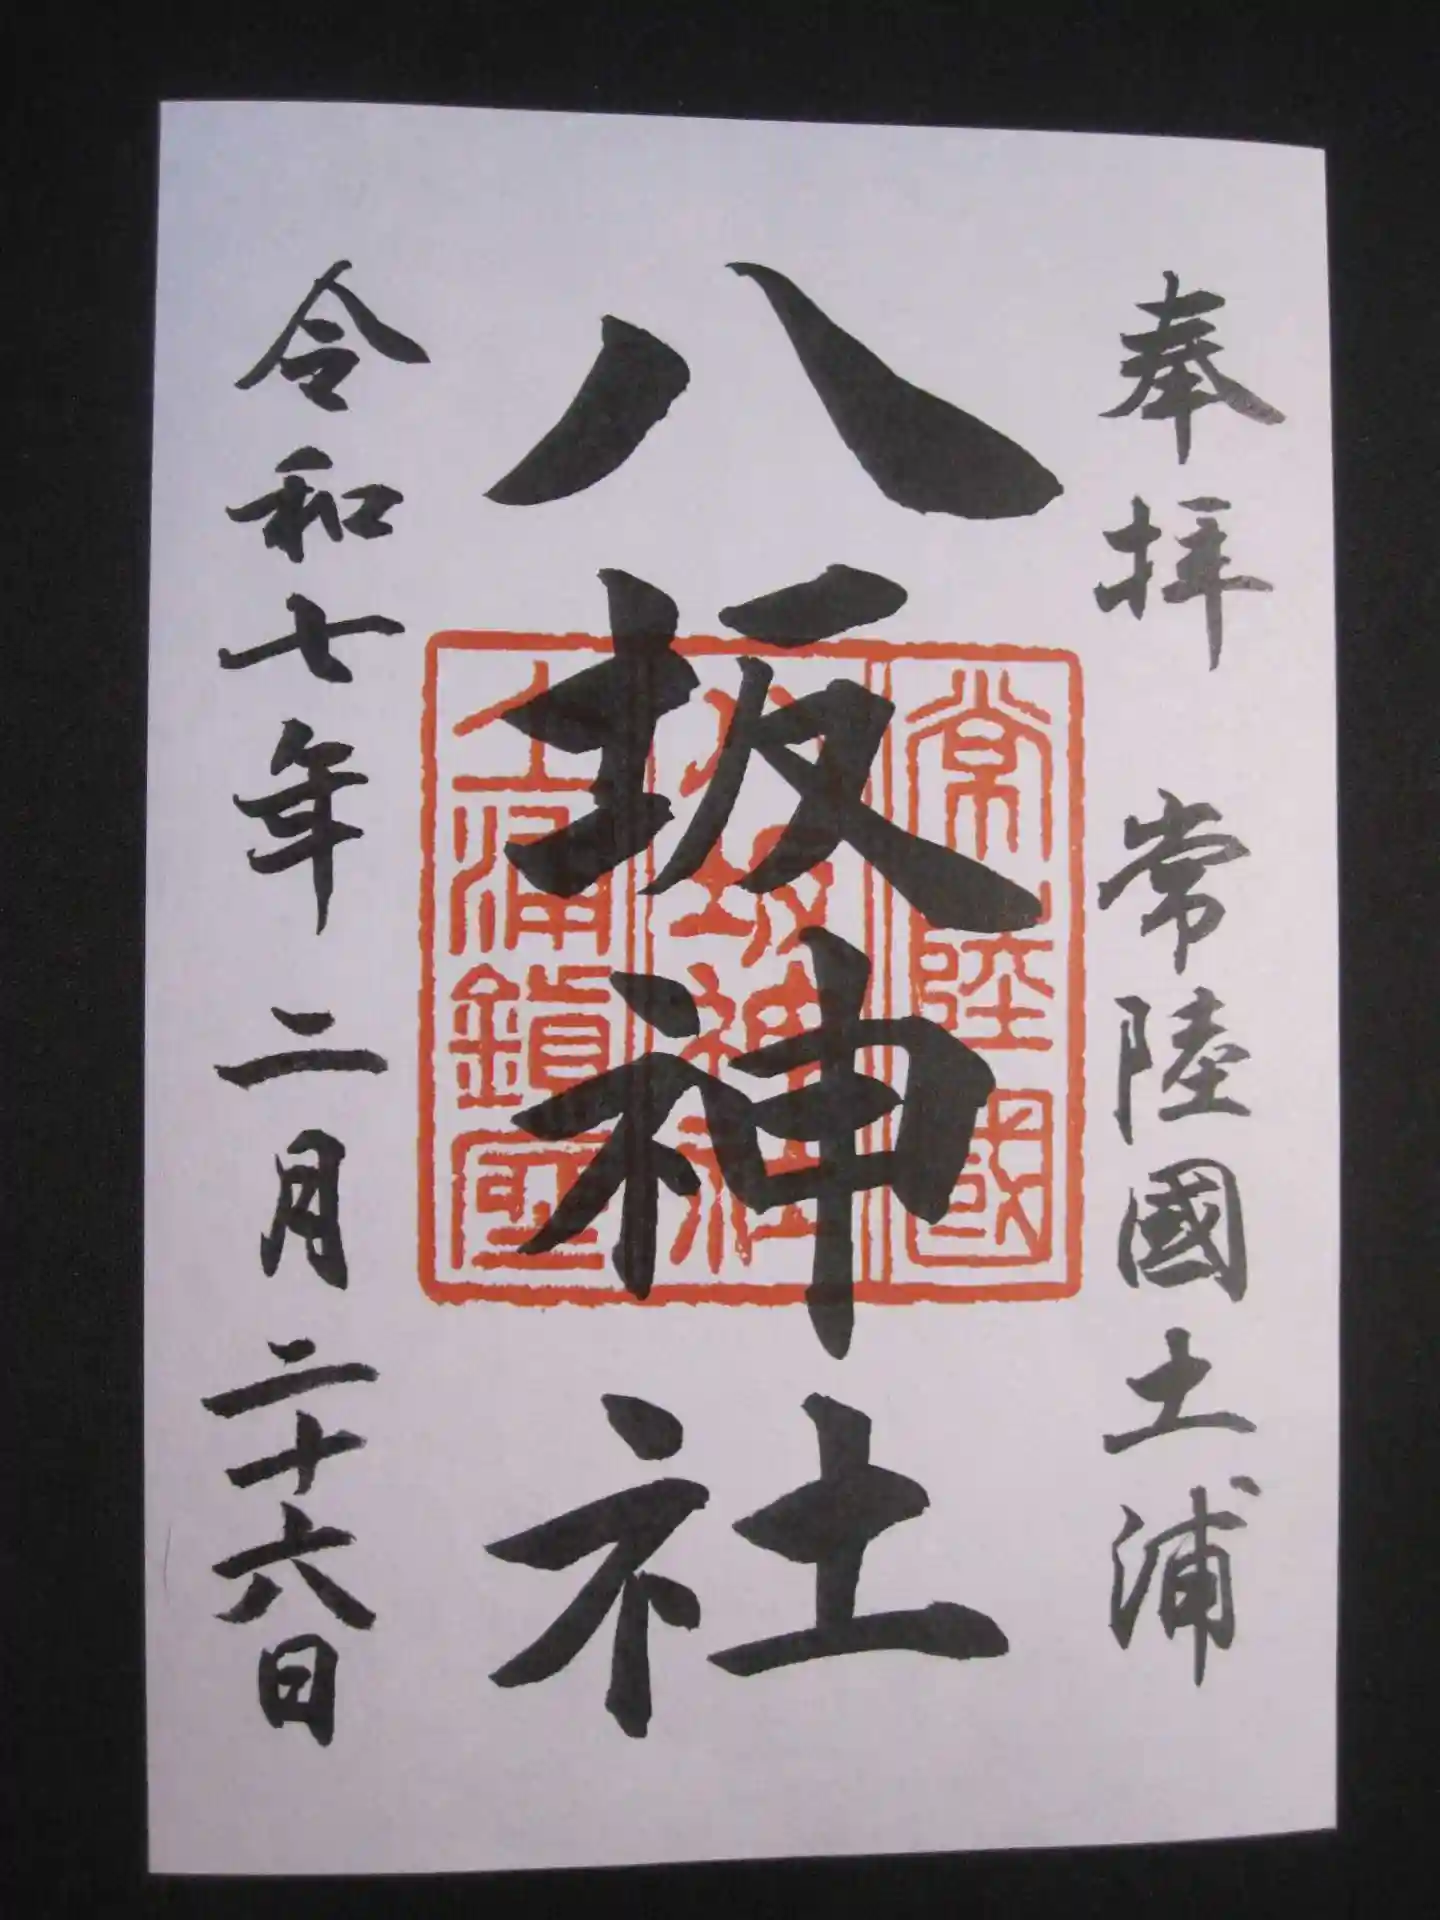 奉拝 常陸國土浦
八坂神社
常陸國
八坂神社
土浦鎮座
令和七年二月二十六日